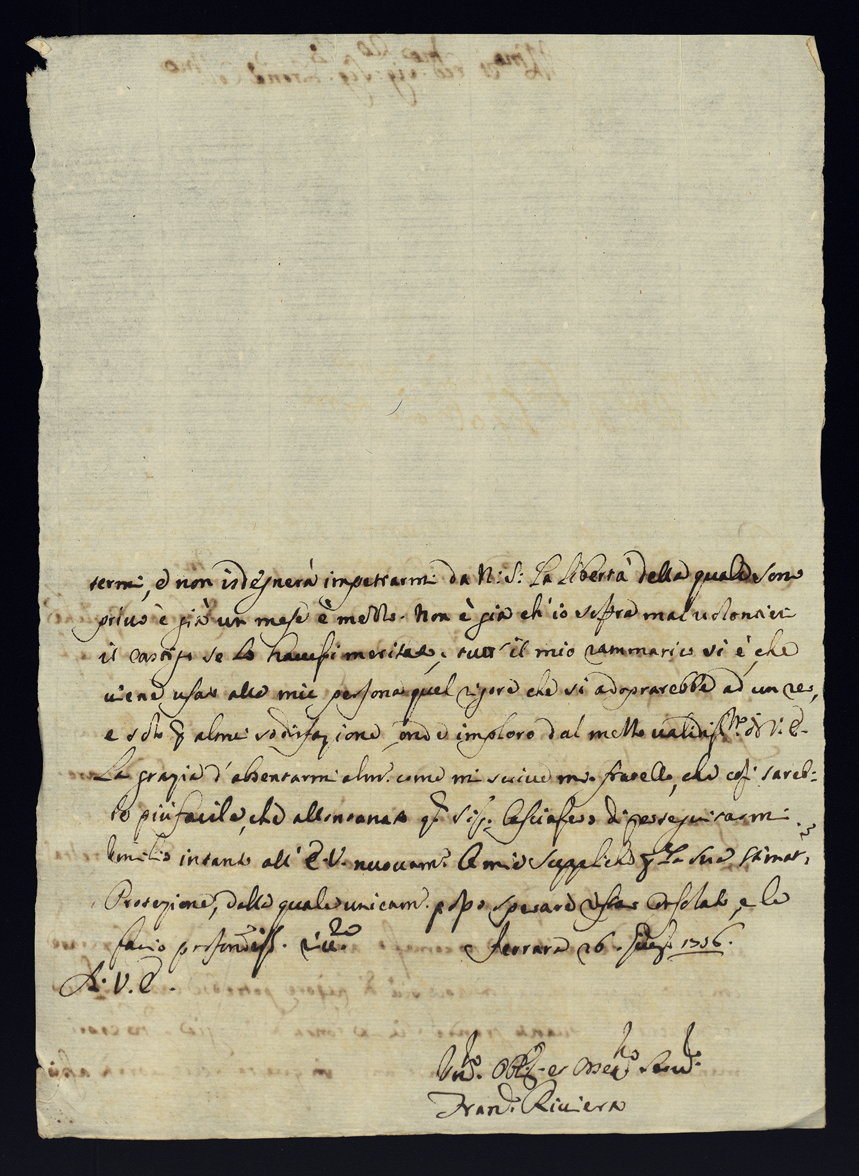 termi, e non isdegnerà impetrarmi da N: S: la libertà della quale sono
privo è già un mese è mezzo. Non è già ch'io soffra mal volontieri
il castigo se lo havessi meritato, tutt' il mio rammarico si è, che
viene usato alla mia persona quel rigore che si adoprarebbe ad un reo,
e solo altrui sodisfazione, onde imploro dal mezzo validiss.mo di V: E.
La grazia d'absentarmi alm. come mi scrive mio fratello, che così sareb:
be più facile, che allontanato Sig. lasciasero di perseguitarmi.
Umilio intanto all' E.V. nuovam. le mie suppliche la sua stimat.
Protezione, dalla quale unicam. posso sperare restar consolato, e le
facio profondiss. riu.
Ferrara 26. 1756.
A. V. E.
Um. Obl. et Osse. Serv.
Fran. Riviera